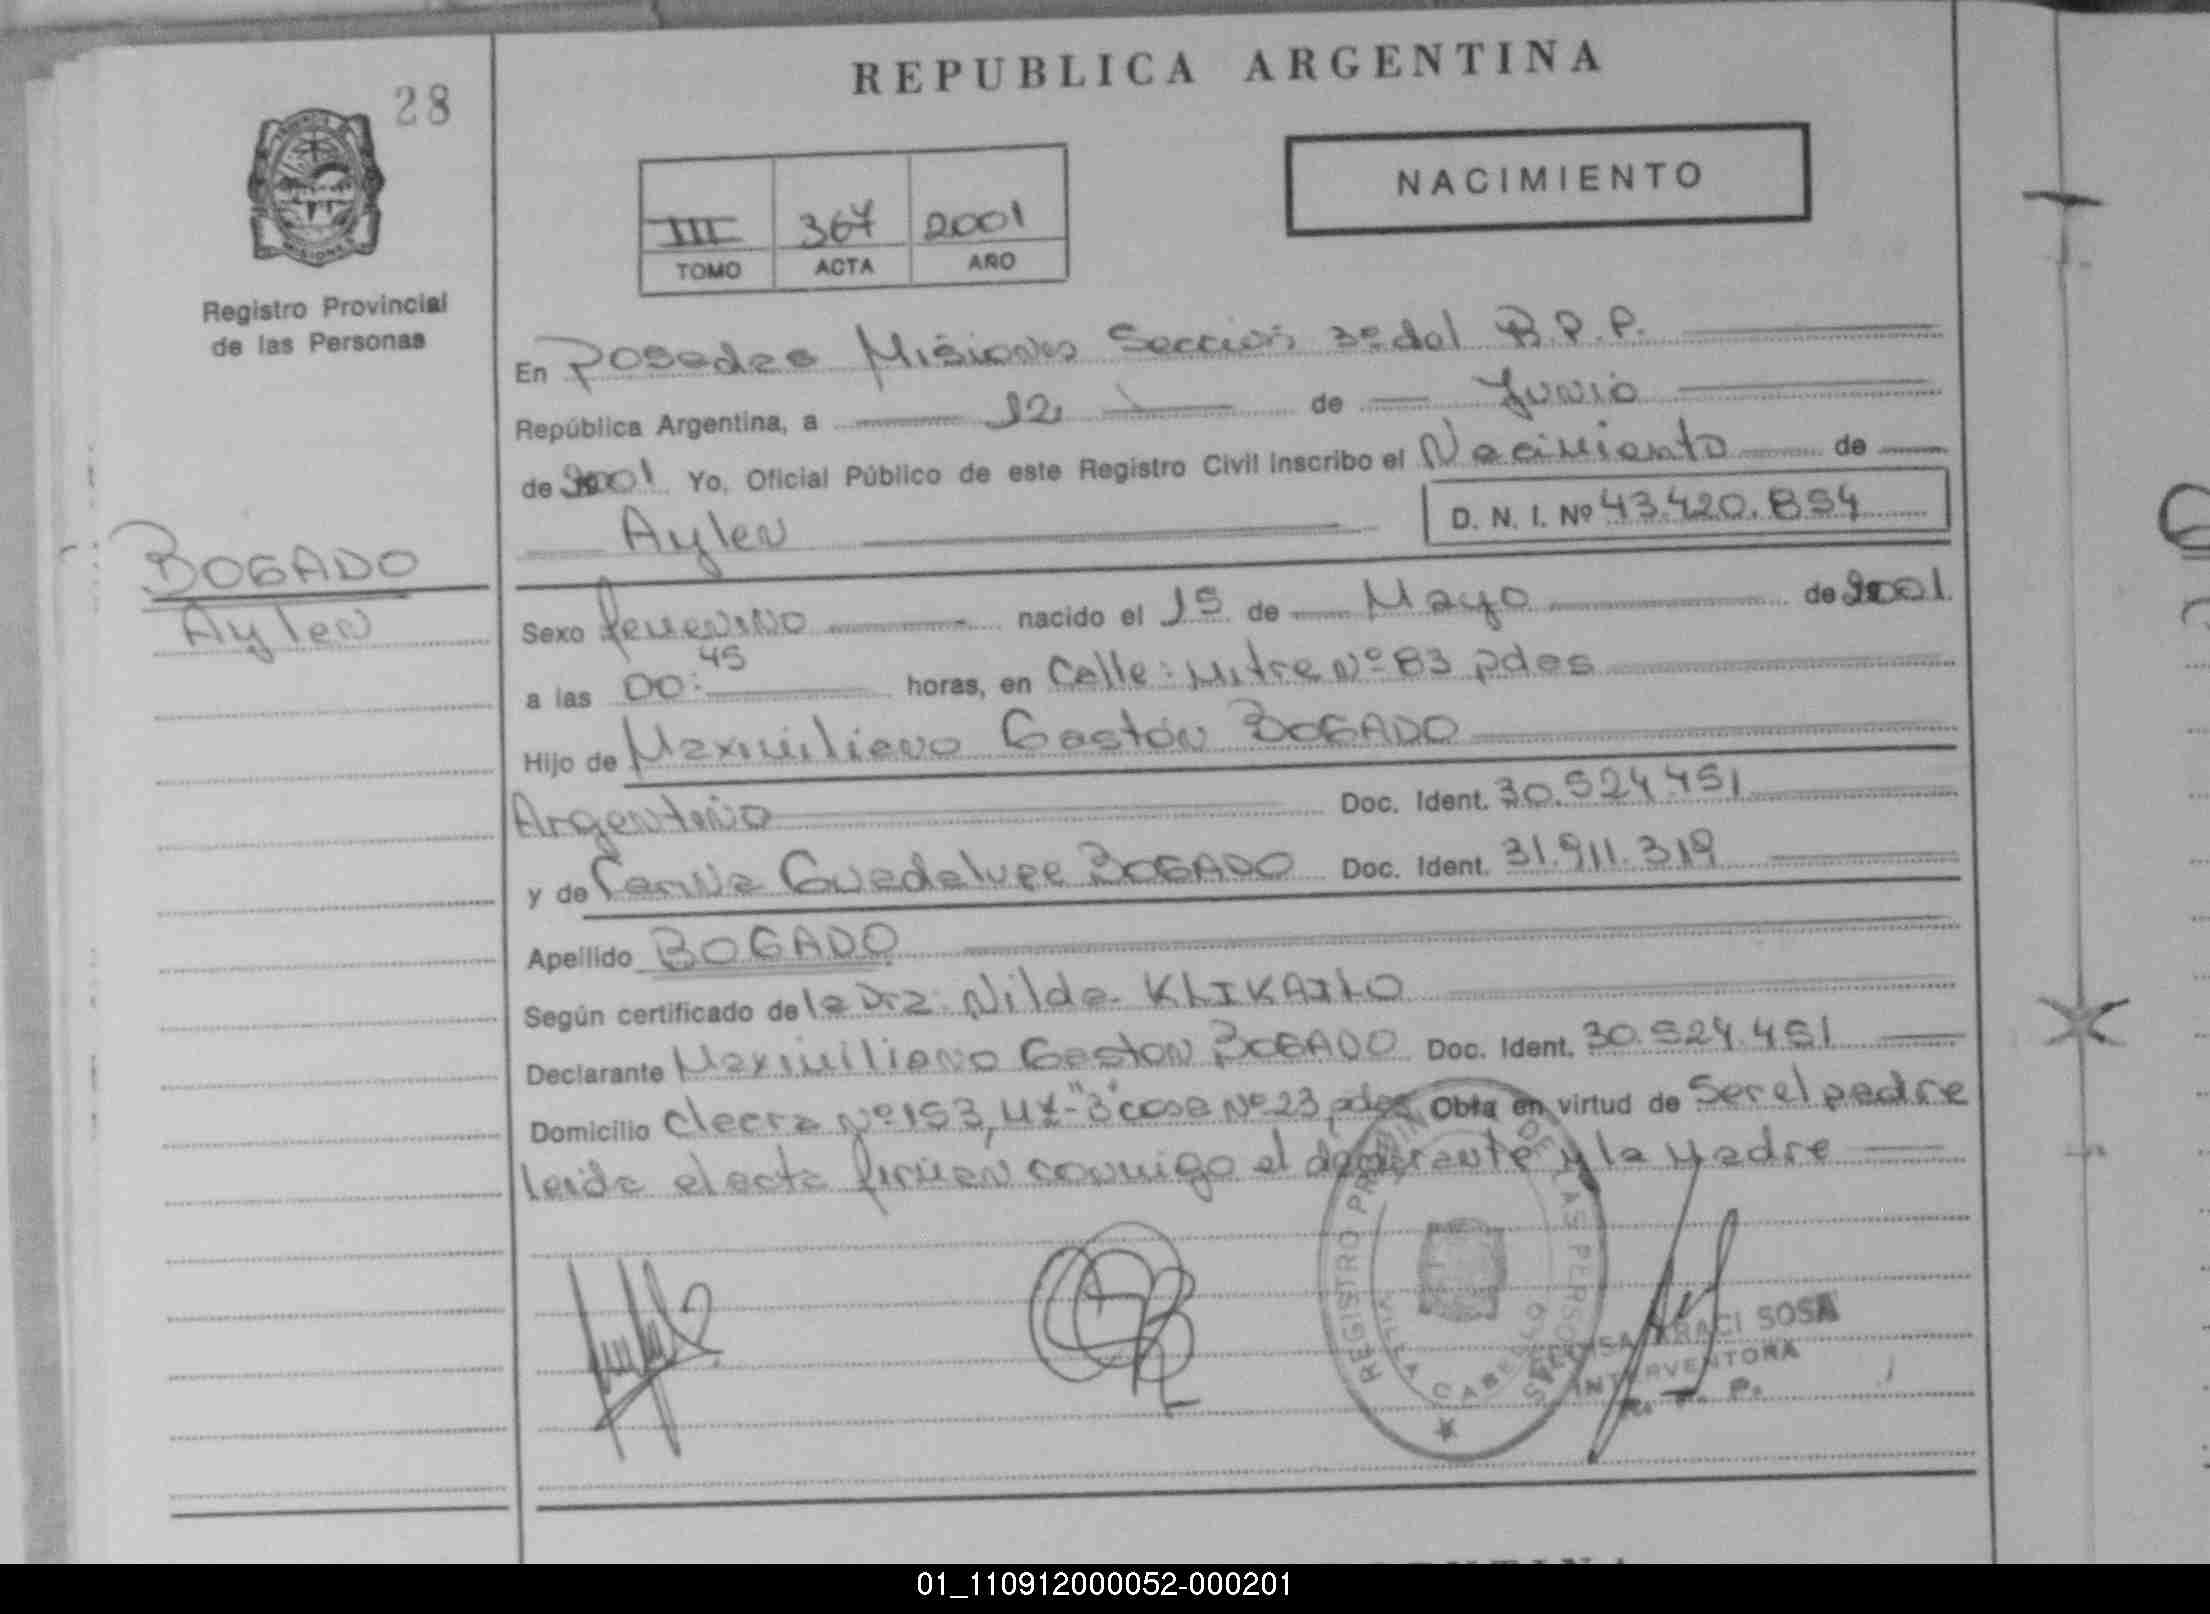 28
REPUBLICA ARGENTINA
NACIMIENTO
III 367 2001
TOMO ACTA AÑO
Registro Provincial
de las Personas
En Posadas Misiones Sección 3º del R.P.P.
República Argentina, a 12 de Junio
de 2001 Yo, Oficial Público de este Registro Civil inscribo el Nacimiento de
Aylen D. N. I. Nº 43.420.854
BOGADO
Aylen
Sexo femenino nacido el 15 de Mayo de 2001
a las 00:45 horas, en Calle: Mitre Nº 83 pdas
Hijo de Maximiliano Gastón BOGADO
Argentino Doc. Ident. 30.524.451
y de Carina Guadalupe BOGADO Doc. Ident. 31.911.319
Apellido BOGADO
Según certificado de la Dra: Nilda KLIKAILO
Declarante Maximiliano Gaston BOGADO Doc. Ident. 30.524.451
Domicilio Chacra Nº 153, Mz-"3" casa Nº 23, pdas Obra en virtud de Ser el padre
leida el acta firman conmigo el declarante y la madre
REGISTRO PROVINCIAL DE LAS PERSONAS
VILLA CABELLO
ARACI SOSA
INTERVENTORA
R. P. P.
01_110912000052-000201